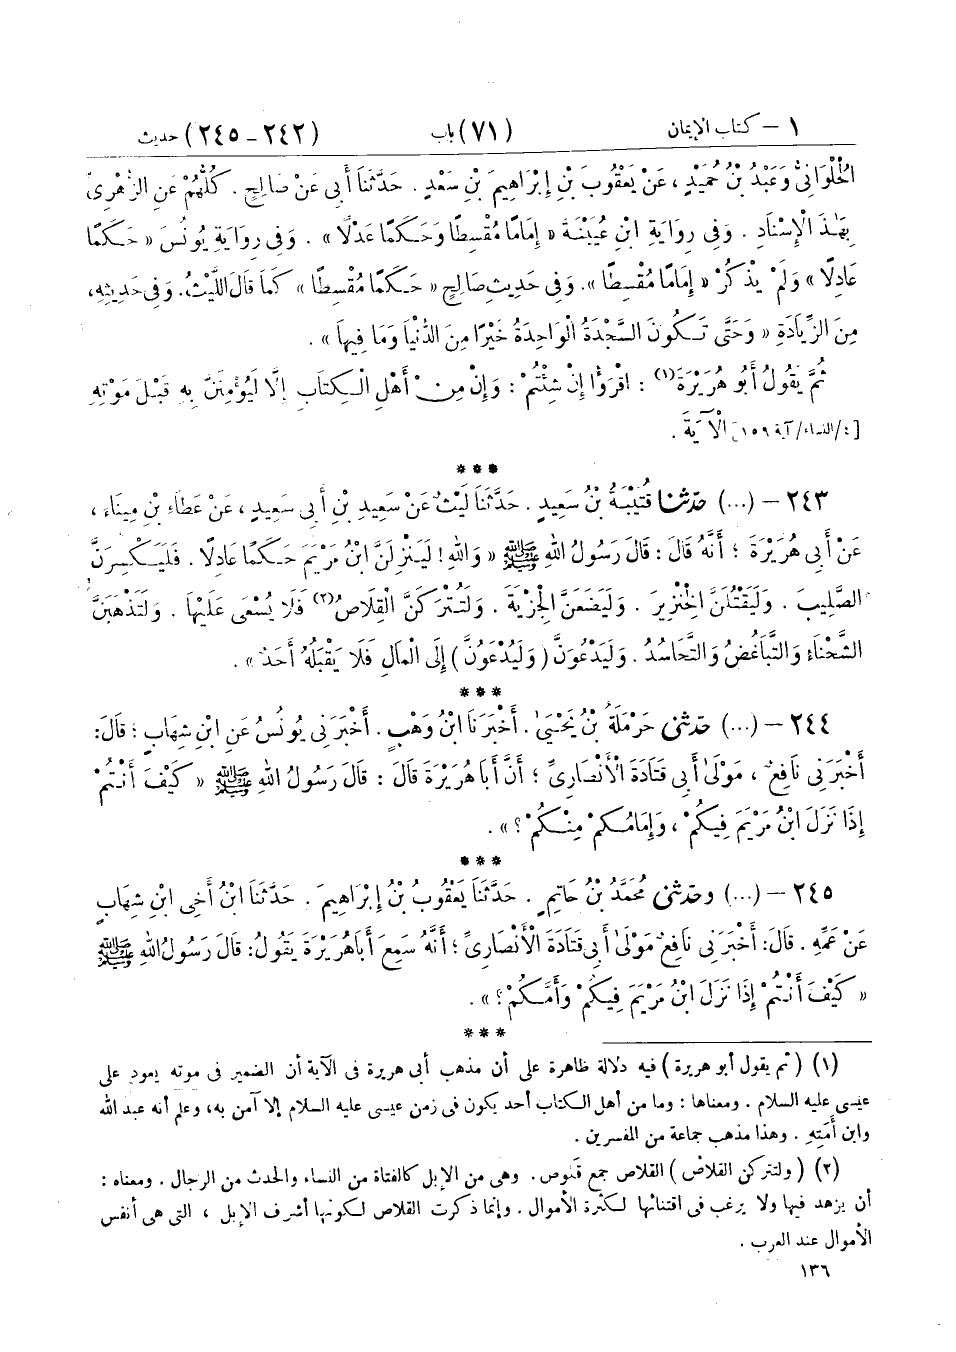 ١ – كتاب الإيمان (٧١) باب (٢٤٢ – ٢٤٥) حديث
الْحُلْوَانِيُّ وَعَبْدُ بْنُ حُمَيْدٍ ، عَنْ يَعْقُوبَ بْنِ إِبْرَاهِيمَ بْنِ سَعْدٍ . حَدَّثَنَا أَبِي عَنْ صَالِحٍ . كُلُّهُمْ عَنِ الزُّهْرِيِّ
بِهَٰذَا الْإِسْنَادِ . وَفِي رِوَايَةِ ابْنِ عُيَيْنَةَ « إِمَامًا مُقْسِطًا وَحَكَمًا عَدْلًا » . وَفِي رِوَايَةِ يُونُسَ « حَكَمًا
عَادِلًا » وَلَمْ يَذْكُرْ « إِمَامًا مُقْسِطًا ». وَفِي حَدِيثِ صَالِحٍ « حَكَمًا مُقْسِطًا » كَمَا قَالَ اللَّيْثُ. وَفِي حَدِيثِهِ،
مِنَ الزِّيَادَةِ « وَحَتَّى تَكُونَ السَّجْدَةُ الْوَاحِدَةُ خَيْرًا مِنَ الدُّنْيَا وَمَا فِيهَا » .
ثُمَّ يَقُولُ أَبُو هُرَيْرَةَ(١) : اقْرَؤُا إِنْ شِئْتُمْ : وَإِنْ مِنْ أَهْلِ الْكِتَابِ إِلَّا لَيُؤْمِنَنَّ بِهِ قَبْلَ مَوْتِهِ
[٤/النساء/آية ١٥٩] الْآيَةَ .
***
٢٤٣ – (...) حَدَّثَنَا قُتَيْبَةُ بْنُ سَعِيدٍ . حَدَّثَنَا لَيْثٌ عَنْ سَعِيدِ بْنِ أَبِي سَعِيدٍ ، عَنْ عَطَاءِ بْنِ مِينَاءَ ،
عَنْ أَبِي هُرَيْرَةَ ؛ أَنَّهُ قَالَ : قَالَ رَسُولُ اللهِ ﷺ « وَاللهِ ! لَيَنْزِلَنَّ ابْنُ مَرْيَمَ حَكَمًا عَادِلًا . فَلَيَكْسِرَنَّ
الصَّلِيبَ . وَلَيَقْتُلَنَّ الْخِنْزِيرَ . وَلَيَضَعَنَّ الْجِزْيَةَ . وَلَتُتْرَكَنَّ الْقِلَاصُ(٢) فَلَا يُسْعَى عَلَيْهَا . وَلَتَذْهَبَنَّ
الشَّحْنَاءُ وَالتَّبَاغُضُ وَالتَّحَاسُدُ . وَلَيَدْعُوَنَّ ( وَلَيُدْعَوُنَّ ) إِلَى الْمَالِ فَلَا يَقْبَلُهُ أَحَدٌ » .
***
٢٤٤ – (...) حَدَّثَنِي حَرْمَلَةُ بْنُ يَحْيَىٰ . أَخْبَرَنَا ابْنُ وَهْبٍ . أَخْبَرَنِي يُونُسُ عَنِ ابْنِ شِهَابٍ ؛ قَالَ:
أَخْبَرَنِي نَافِعٌ ، مَوْلَىٰ أَبِي قَتَادَةَ الْأَنْصَارِيِّ ؛ أَنَّ أَبَا هُرَيْرَةَ قَالَ : قَالَ رَسُولُ اللهِ ﷺ « كَيْفَ أَنْتُمْ
إِذَا نَزَلَ ابْنُ مَرْيَمَ فِيكُمْ ، وَإِمَامُكُمْ مِنْكُمْ ؟ » .
***
٢٤٥ – (...) وَحَدَّثَنِي مُحَمَّدُ بْنُ حَاتِمٍ . حَدَّثَنَا يَعْقُوبُ بْنُ إِبْرَاهِيمَ . حَدَّثَنَا ابْنُ أَخِي ابْنِ شِهَابٍ
عَنْ عَمِّهِ . قَالَ: أَخْبَرَنِي نَافِعٌ مَوْلَىٰ أَبِي قَتَادَةَ الْأَنْصَارِيِّ ؛ أَنَّهُ سَمِعَ أَبَا هُرَيْرَةَ يَقُولُ: قَالَ رَسُولُ اللهِ ﷺ
« كَيْفَ أَنْتُمْ إِذَا نَزَلَ ابْنُ مَرْيَمَ فِيكُمْ وَأَمَّكُمْ ؟ » .
***
(١) ( ثم يقول أبو هريرة ) فيه دلالة ظاهرة على أن مذهب أبى هريرة فى الآية أن الضمير فى موته يعود على
عيسى عليه السلام . ومعناها : وما من أهل الكتاب أحد يكون فى زمن عيسى عليه السلام إلا آمن به، وعلم أنه عبد الله
وابن أَمَتِهِ . وهذا مذهب جماعة من المفسرين .
(٢) ( ولتتركن القلاص ) القلاص جمع قلوص . وهى من الإبل كالفتاة من النساء والحدث من الرجال . ومعناه :
أن يزهد فيها ولا يرغب فى اقتنائها لكثرة الأموال . وإنما ذكرت القلاص لكونها أشرف الإبل ، التى هى أنفس
الأموال عند العرب .
١٣٦